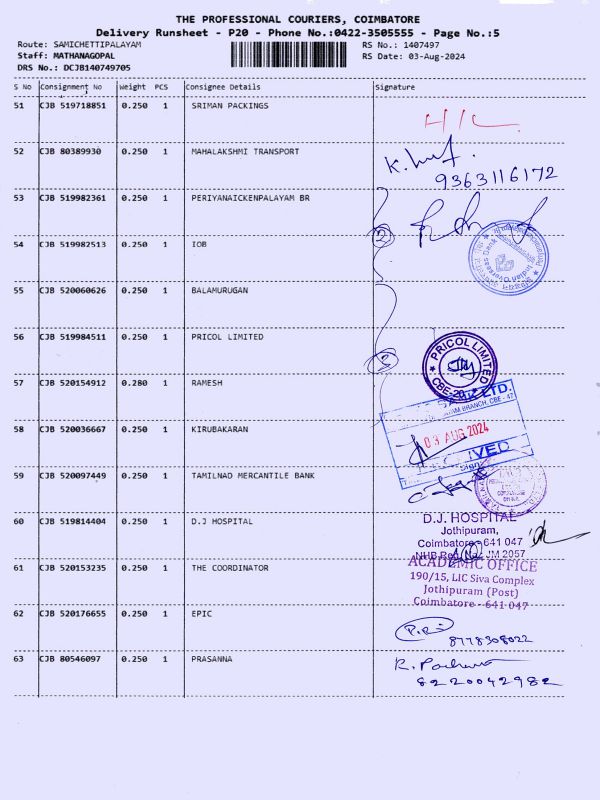 THE PROFESSIONAL COURIERS, COIMBATORE
Delivery Runsheet - P20 - Phone No.:0422-3505555 - Page No.:5
Route: SAMICHETTIPALAYAM RS No.: 1407497
Staff: MATHANAGOPAL RS Date: 03-Aug-2024
DRS No.: DCJB140749705
S No Consignment No Weight PCS Consignee Details Signature
51 CJB 519718851 0.250 1 SRIMAN PACKINGS H/L
52 CJB 80389930 0.250 1 MAHALAKSHMI TRANSPORT
9363116172
53 CJB 519982361 0.250 1 PERIYANAICKENPALAYAM BR
2
54 CJB 519982513 0.250 1 IOB
55 CJB 520060626 0.250 1 BALAMURUGAN
56 CJB 519984511 0.250 1 PRICOL LIMITED
PRICOL LIMITED
CBE-20
57 CJB 520154912 0.280 1 RAMESH
LTD.
BRANCH, CBE - 47
03 AUG 2024
58 CJB 520036667 0.250 1 KIRUBAKARAN
59 CJB 520097449 0.250 1 TAMILNAD MERCANTILE BANK
60 CJB 519814404 0.250 1 D.J HOSPITAL
D.J. HOSPITAL
Jothipuram,
Coimbatore - 641 047
NHB Reg. No. JM 2057
61 CJB 520153235 0.250 1 THE COORDINATOR
ACADEMIC OFFICE
190/15, LIC Siva Complex
Jothipuram (Post)
Coimbatore - 641 047
62 CJB 520176655 0.250 1 EPIC
8778308022
63 CJB 80546097 0.250 1 PRASANNA
8220042982